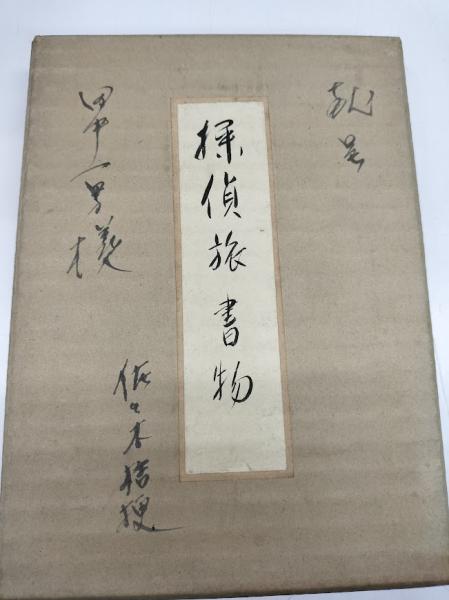 献呈
探偵旅書物
田中一男様
佐々木桔梗